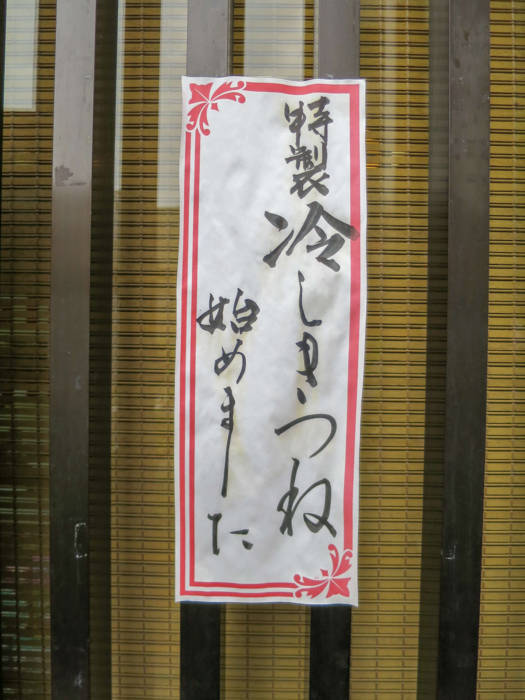 特製冷しきつね
始めました